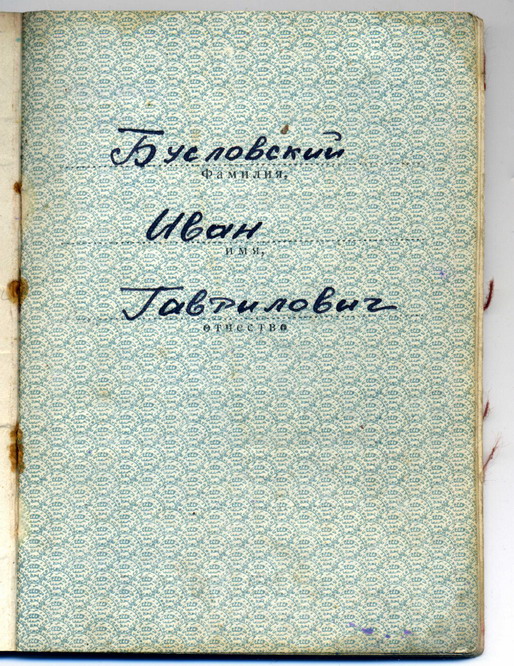 Бусловский
Фамилия,
Иван
имя,
Гаврилович
отчество